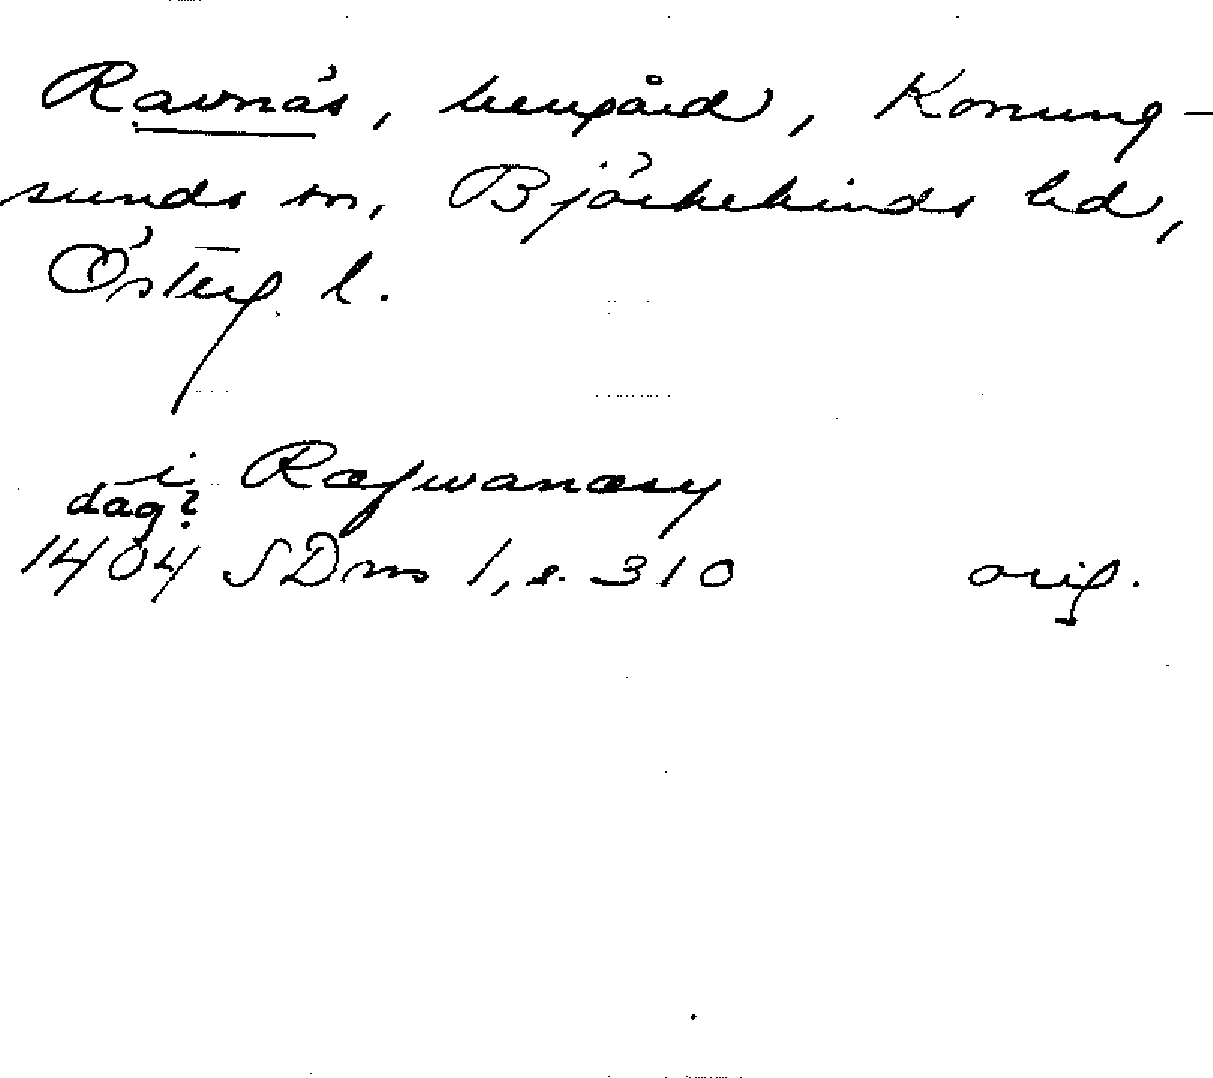 Ravnäs, herrgård, Konung-
sunds sn, Björkekinds hd,
Österg. l.
i Rafwanæsy
dag?
1404 SDns 1, s. 310 orig.